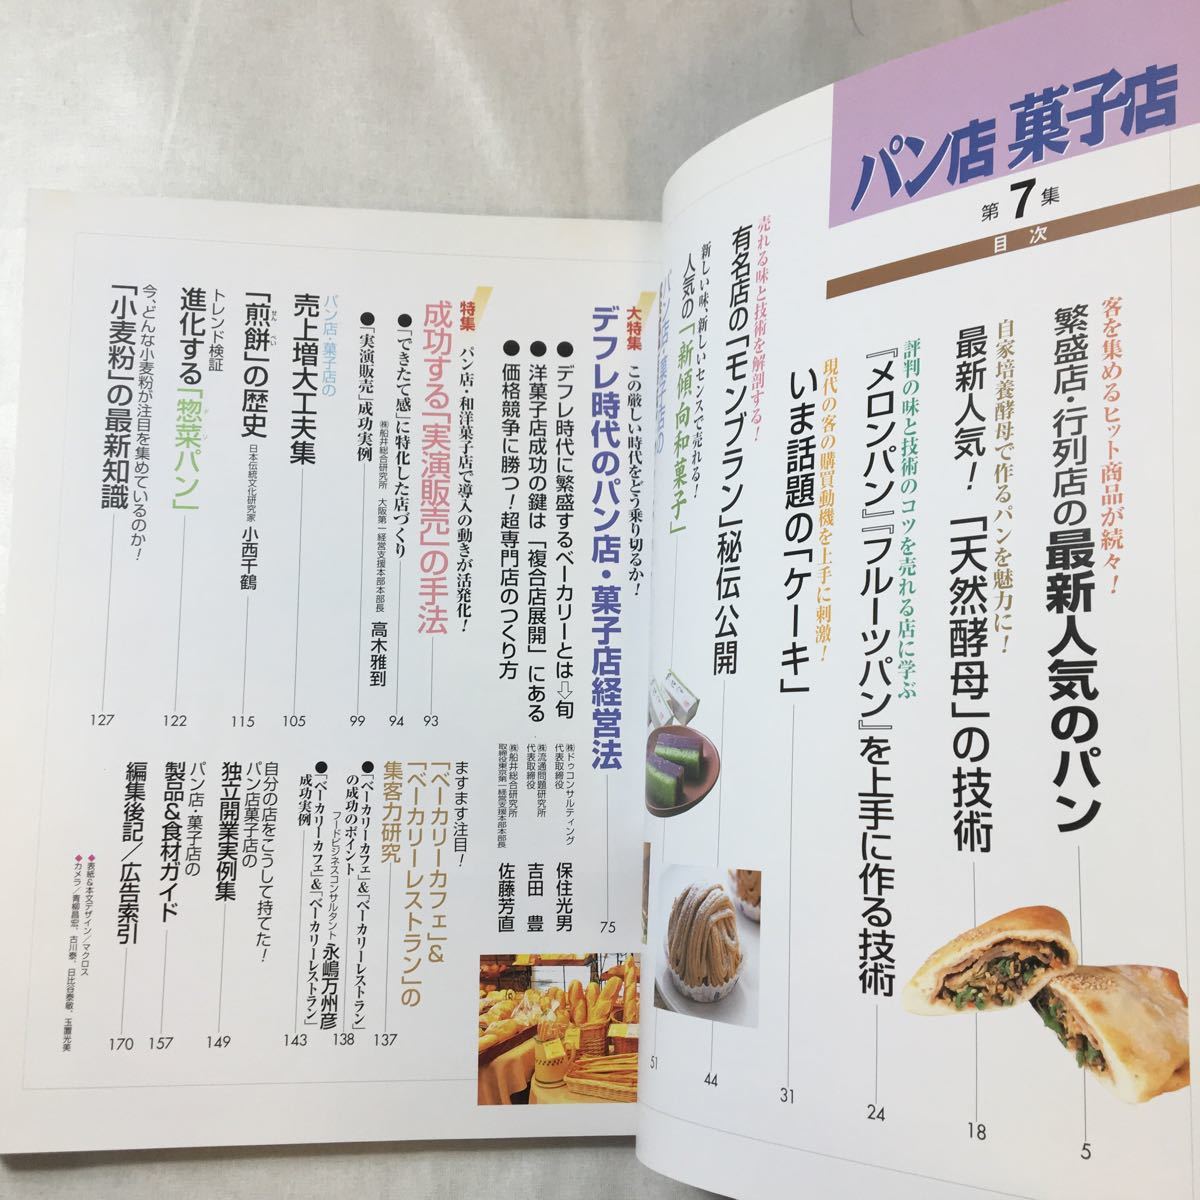 パン店 菓子店
第7集
目次
客を集めるヒット商品が続々!
繁盛店・行列店の最新人気のパン
5
自家培養酵母で作るパンを魅力に!
最新人気!「天然酵母」の技術
18
評判の味と技術のコツを売れる店に学ぶ
『メロンパン』『フルーツパン』を上手に作る技術
24
現代の客の購買動機を上手に刺激!
いま話題の「ケーキ」
31
売れる味と技術を解剖する!
有名店の「モンブラン」秘伝公開
44
新しい味、新しいセンスで売れる!
人気の「新傾向和菓子」
51
パン店・菓子店の
大特集
この厳しい時代をどう乗り切るか!
デフレ時代のパン店・菓子店経営法
75
●デフレ時代に繁盛するベーカリーとは⇨旬
㈱ドゥコンサルティング
代表取締役
保住光男
●洋菓子店成功の鍵は「複合店展開」にある
㈱流通問題研究所
代表取締役
吉田 豊
●価格競争に勝つ!超専門店のつくり方
㈱船井総合研究所
取締役東京第一経営支援本部本部長
佐藤芳直
特集
パン店・和洋菓子店で導入の動きが活発化!
成功する「実演販売」の手法
93
●「できたて感」に特化した店づくり
94
㈱船井総合研究所 大阪第一経営支援本部本部長
高木雅到
●「実演販売」成功実例
99
パン店・菓子店の
売上増大工夫集
105
「煎餅」の歴史
せんべい
日本伝統文化研究家 小西千鶴
115
トレンド検証
進化する「惣菜パン」
122
今、どんな小麦粉が注目を集めているのか!
「小麦粉」の最新知識
127
ますます注目!
「ベーカリーカフェ」&
「ベーカリーレストラン」の
集客力研究
137
●「ベーカリーカフェ」&「ベーカリーレストラン」
の成功のポイント
138
フードビジネスコンサルタント 永嶋万州彦
●「ベーカリーカフェ」&「ベーカリーレストラン」
成功実例
143
自分の店をこうして持てた!
パン店菓子店の
独立開業実例集
149
パン店・菓子店の
製品&食材ガイド
157
編集後記/広告索引
170
◆表紙&本文デザイン/マクロス
◆カメラ/青柳昌宏、古川泰、日比谷泰敏、玉置光美